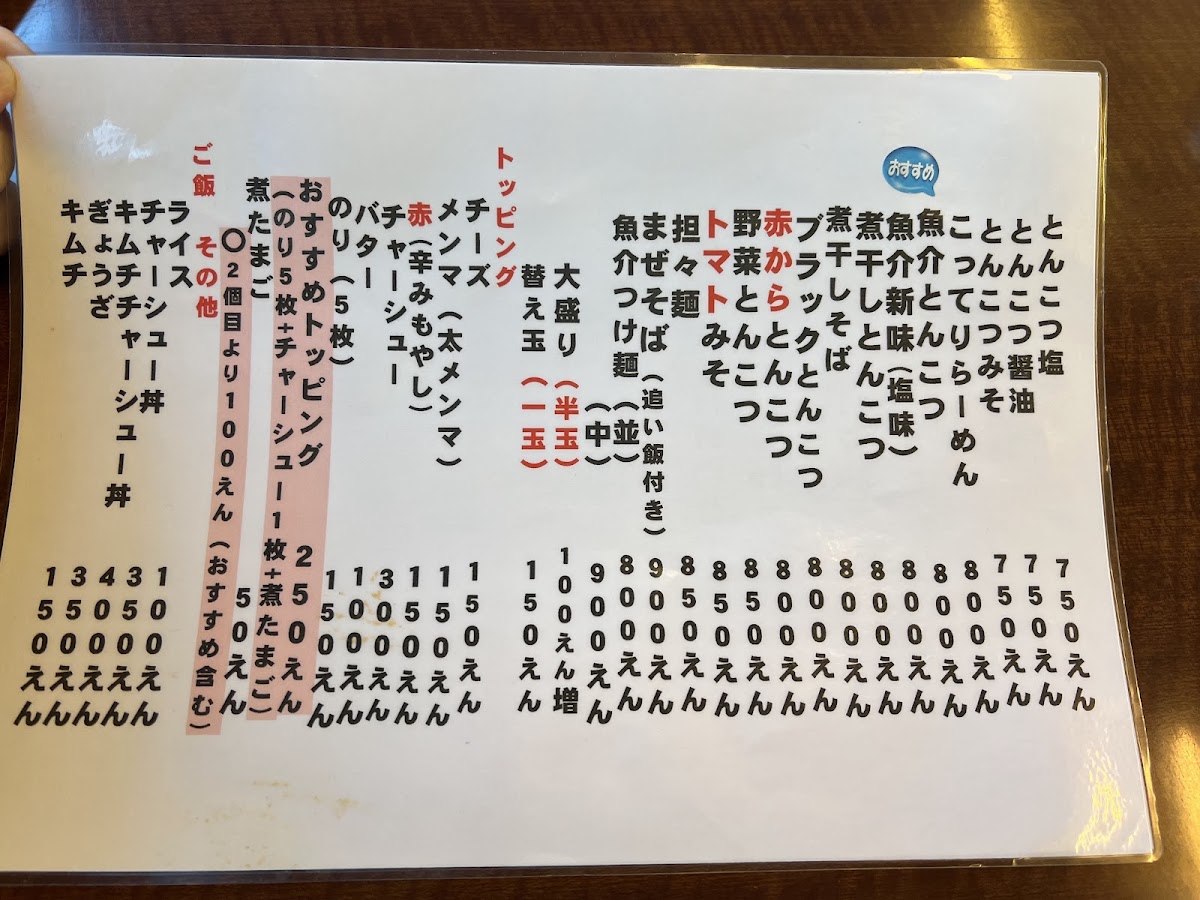 おすすめ
とんこつ塩 750えん
とんこつ醤油 750えん
とんこつみそ 750えん
こってりらーめん 800えん
魚介とんこつ 800えん
魚介新味(塩味) 800えん
煮干しとんこつ 800えん
煮干しそば 800えん
ブラックとんこつ 800えん
赤からとんこつ 800えん
野菜とんこつ 850えん
トマトみそ 850えん
担々麺 850えん
まぜそば(追い飯付き) 900えん
魚介つけ麺(並) 800えん
(中) 900えん
大盛り(半玉) 100えん増
替え玉(一玉) 150えん
トッピング
チーズ 150えん
メンマ(太メンマ) 150えん
赤(辛みもやし) 150えん
チャーシュー 300えん
バター 100えん
のり(5枚) 150えん
おすすめトッピング 250えん
(のり5枚+チャーシュー1枚+煮たまご)
煮たまご 50えん
〇2個目より100えん(おすすめ含む)
ご飯 その他
ライス 100えん
チャーシュー丼 350えん
キムチチャーシュー丼 400えん
ぎょうざ 350えん
キムチ 150えん